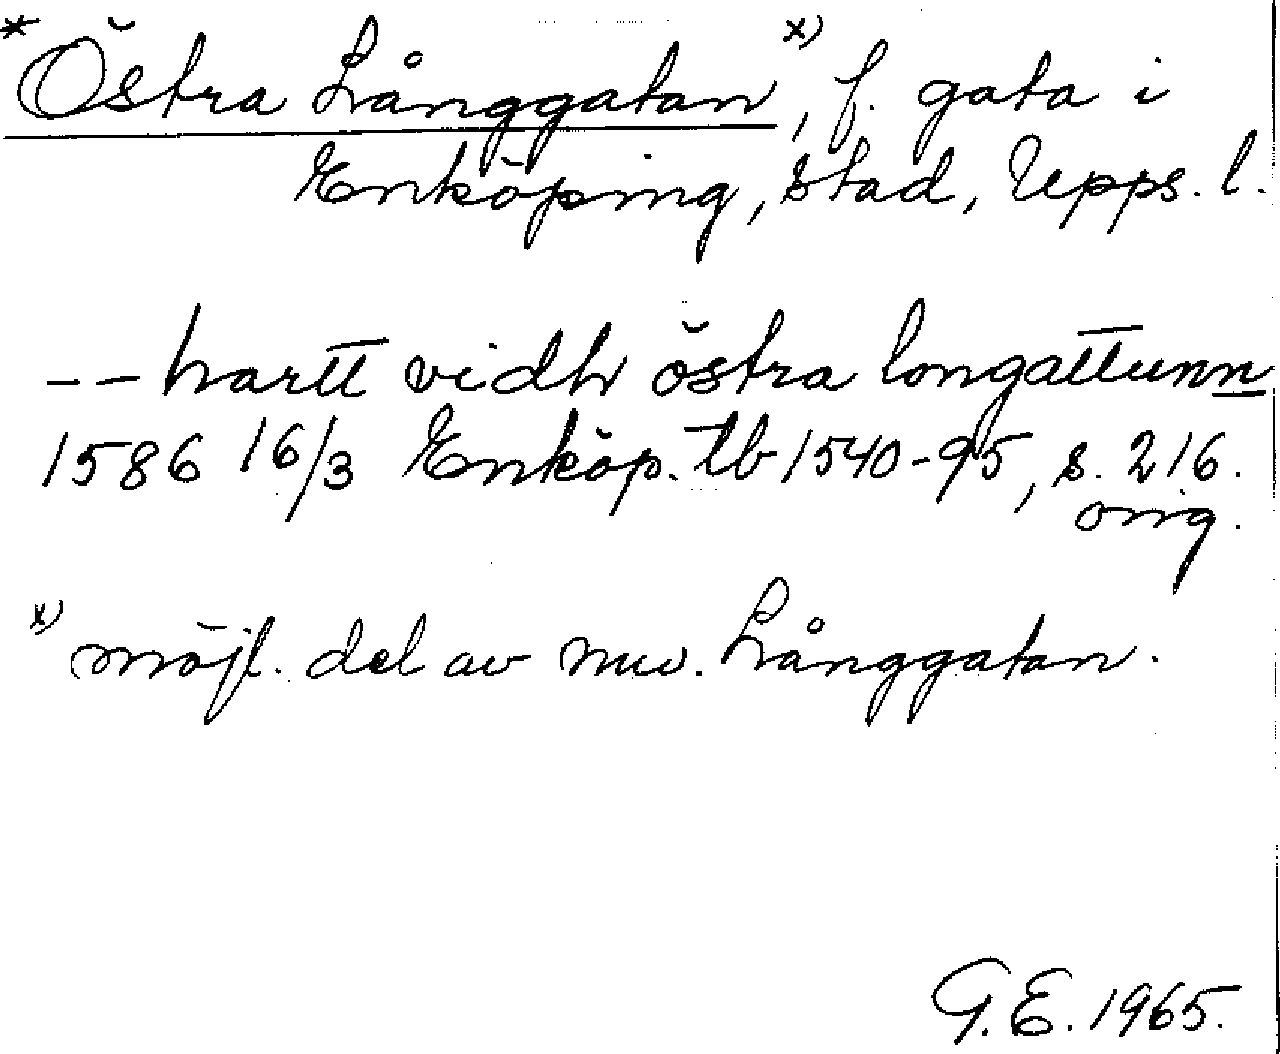 *Östra Långgatan x), f. gata i
Enköping, stad, Upps. l.
-- hartt vidh östra longattunn
1586 16/3 Enköp. tb 1540-95, s. 216.
orig.
x) möjl. del av nuv. Långgatan.
G.E. 1965.